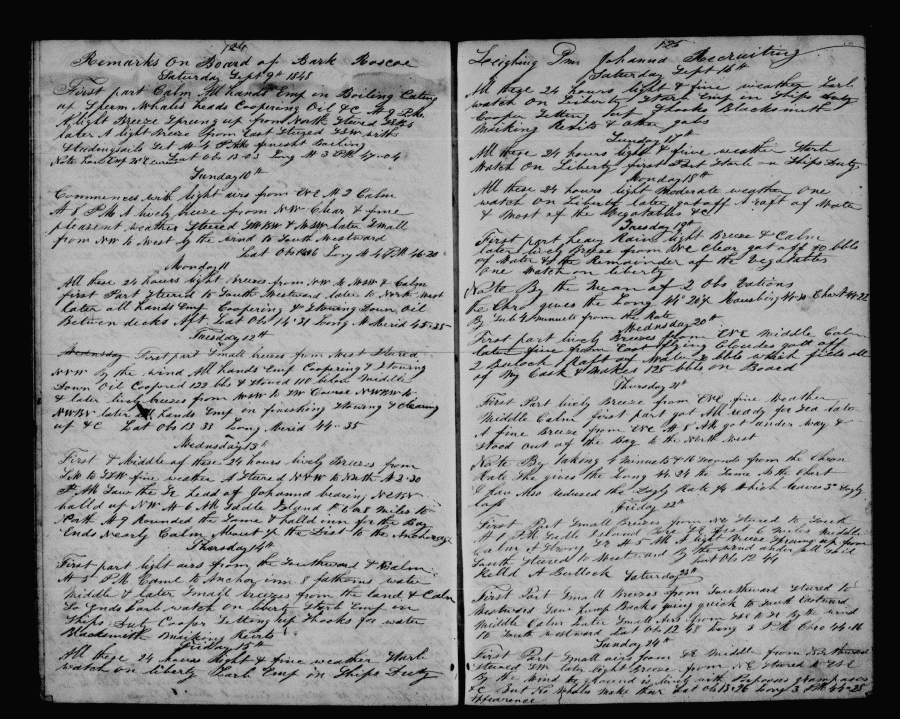 124
Remarks On Board of Bark Roscoe
Saturday Sept 9th 1848
First part Calm All hands Emp on Boiling Cuting
up Sperm Whales heads Coopering Oil &c At 9 P.M
A light Breeze Sprung up from North Stered
later A light Breeze from East Stered SSW with
Studingsails Set At 4 P.M finesht Boiling
Lat Obs 13-03 Long At 3 P.M 47-04
Sunday 10th
Commences with light airs from ENE M 2 Calm
At 8 P.M A lively breeze from N.W. Clear & fine
pleasent weather Stered later Small
from NW to West by the wind to South Westward
Lat Obs Long At 4 P.M 46-20
Monday 11
All these 24 hours light breezes from NW to WNW & Calm
first Part Stered to South Westward later to North West
later all hands Emp Coopering & Stowing Down Oil
Between decks Aft Lat Obs 14-31 Long At Merid 45-35
Tuesday 12th
First part Small breezes from West Stered
NNW by the wind All hands Emp Coopering & Stowing
Down Oil Coopered 122 bbls & Stowed 110 below Middle
& later lively breezes from WSW to SW Course NWBW to
NWBN later All hands Emp in finishing Stowing & Clearing
up &c Lat Obs 13 33 Long Merid 44-35
Wednesday 13th
First & Middle of these 24 hours lively Breezes from
to SSW fine weather A Stered NNW to North At 2-30
P.M Saw the Head of Johanna bearing
halld up NW At 6 AM Saddle Island 8 miles to
North At 9 Rounded the Same & halld inn for the Bay
Ends Nearly Calm About the Dist to the Anchorage
Thursday 14th
First part light airs from the Southward & Calm
At 5 P.M Came to Anchor inn 8 fathoms water
Middle & later Small breezes from the land & Calm
So Ends Larb watch on liberty Starb Emp on
Ships Duty Cooper Setting up Shooks for water
Blacksmith Making Rivits
Friday 15th
All these 24 hours light & fine weather Starb
watch on liberty Larb Emp on Ships Duty
125
Laighing Inn Johanna Recruiting
Saturday Sept 16th
All these 24 hours light & fine weather Larb
watch on Liberty Starb Emp in Ships Duty
Cooper Setting up Shooks Blacksmith
Making Rivits & other jobs
Sunday 17th
All these 24 hours light & fine weather Starb
Watch On Liberty first Part Larb on Ships Duty
Monday 18th
All these 24 hours light Moderate weather One
watch on Liberty later got off A raft of Water
& Most of the Vegatables &c
Tuesday 19th
First part heavy Rain light Breeze & Calm
later lively Breeze from ENE Clear got off 40 bbls
of Water & the Remainder of the Vegatables
One watch on liberty
Note By the Mean of 2 Obs
the Chro gives the Long Chart 44-22
By Sub 4 minuets from the Rate
Wednesday 20th
First part lively Breezes from ENE Middle Calm
later fine from East flying Cloudes got off
2 Bullock 1 Raft of Water bbls which fills all
of My Cask & Makes 125 bbls on Board
Thursday 21st
First Part lively Breeze from ENE fine Weather
Middle Calm first part got All ready for Sea later
A fine Breeze from ENE At 8 AM got under way &
Stood out of the Bay to the North West
Note By taking 4 Minuets & 16 Seconds from the Chron
Rate She gives the Long 44 24 the Same As the Chart
I have Also reduced the Dayly Rate Which leaves 3s Dayly
loss
Friday 22d
First Part Small Breezes from NE Stered to South
At 1 P.M Sadle Island Miles Middle
Calm & Strong At 5 A.M A light Breeze Sprung up from
South Stered to Westward By the wind under all Said
Killd A Bullock Lat Obs 12 44
Saturday 23d
First Part Small Breezes from Southward Stered to
Westward Saw Hump Backs going quick to South Eastward
Middle Calm later Small Airs from by the wind
to South westward Lat Obs 12 48 Long 2 P.M Chro 44-16
Sunday 24
First Part Small airs from Middle from
Stered SW later light Breeze from NE Stered
by the wind the ground is lively with Porpoises grampuses
&c But No Whales make their Lat Obs 13-26 Long 3 P.M 44-25
Appearence